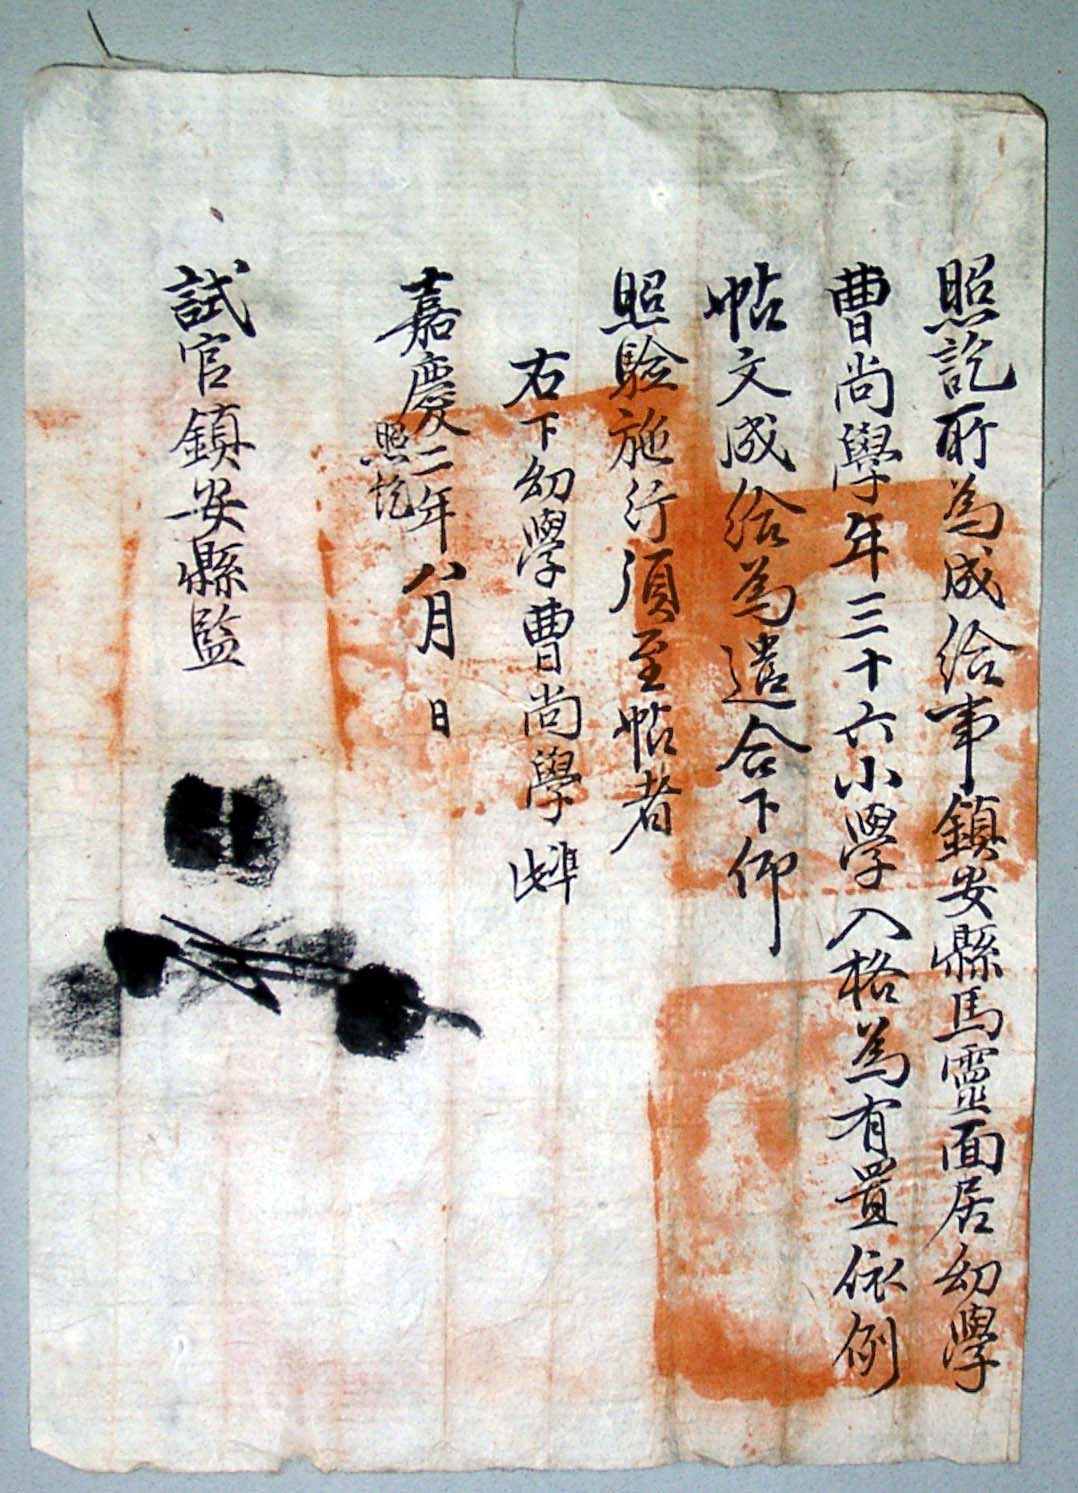 照訖所爲成給事鎭安縣馬靈面居幼學
曹尙學年三十六小學入格爲有置依例
帖文成給爲遣合下仰
照驗施行須至帖者
右下幼學曹尙學 準
嘉慶二年八月 日
照訖
試官鎭安縣監